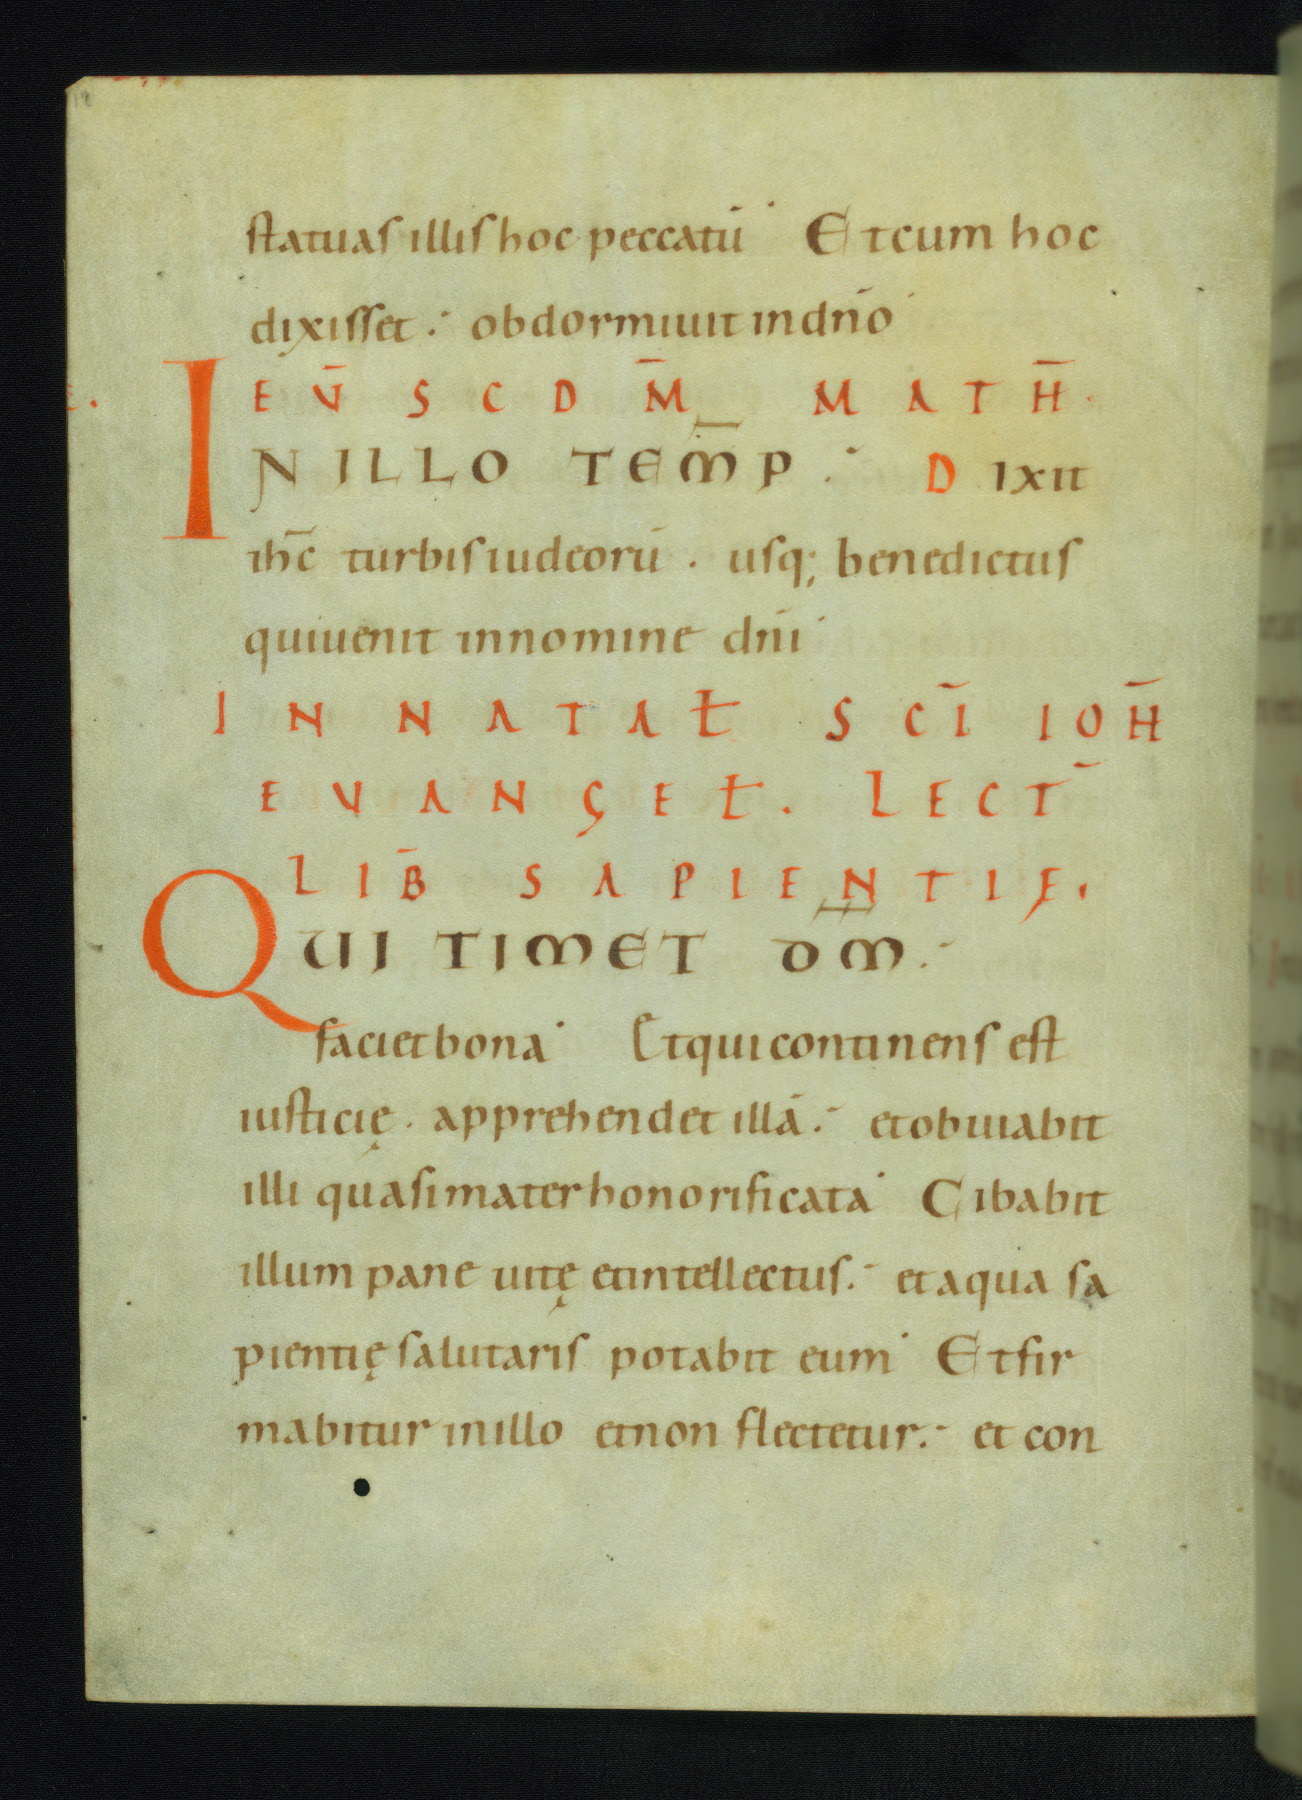 statuas illis hoc peccatū Et cum hoc
dixisset : obdormiuit in dn̄o
EV̄ SCDM̄ MATH̄.
INILLO TEM̄P : DIXIT
ih̄c turbis iudeorū . usq; benedictus
qui uenit in nomine dn̄i
IN NATAŁ SCĪ IOH̄
EVANGEŁ. LECT̄
LIB̄ SAPIENTIĘ.
QUI TIMET DM̄ :
faciet bona Et qui continens est
iusticię . apprehendet illā : et obuiabit
illi quasi mater honorificata Cibabit
illum pane uitę et intellectus : et aqua sa
pientię salutaris potabit eum Et fir
mabitur in illo et non flectetur : et con